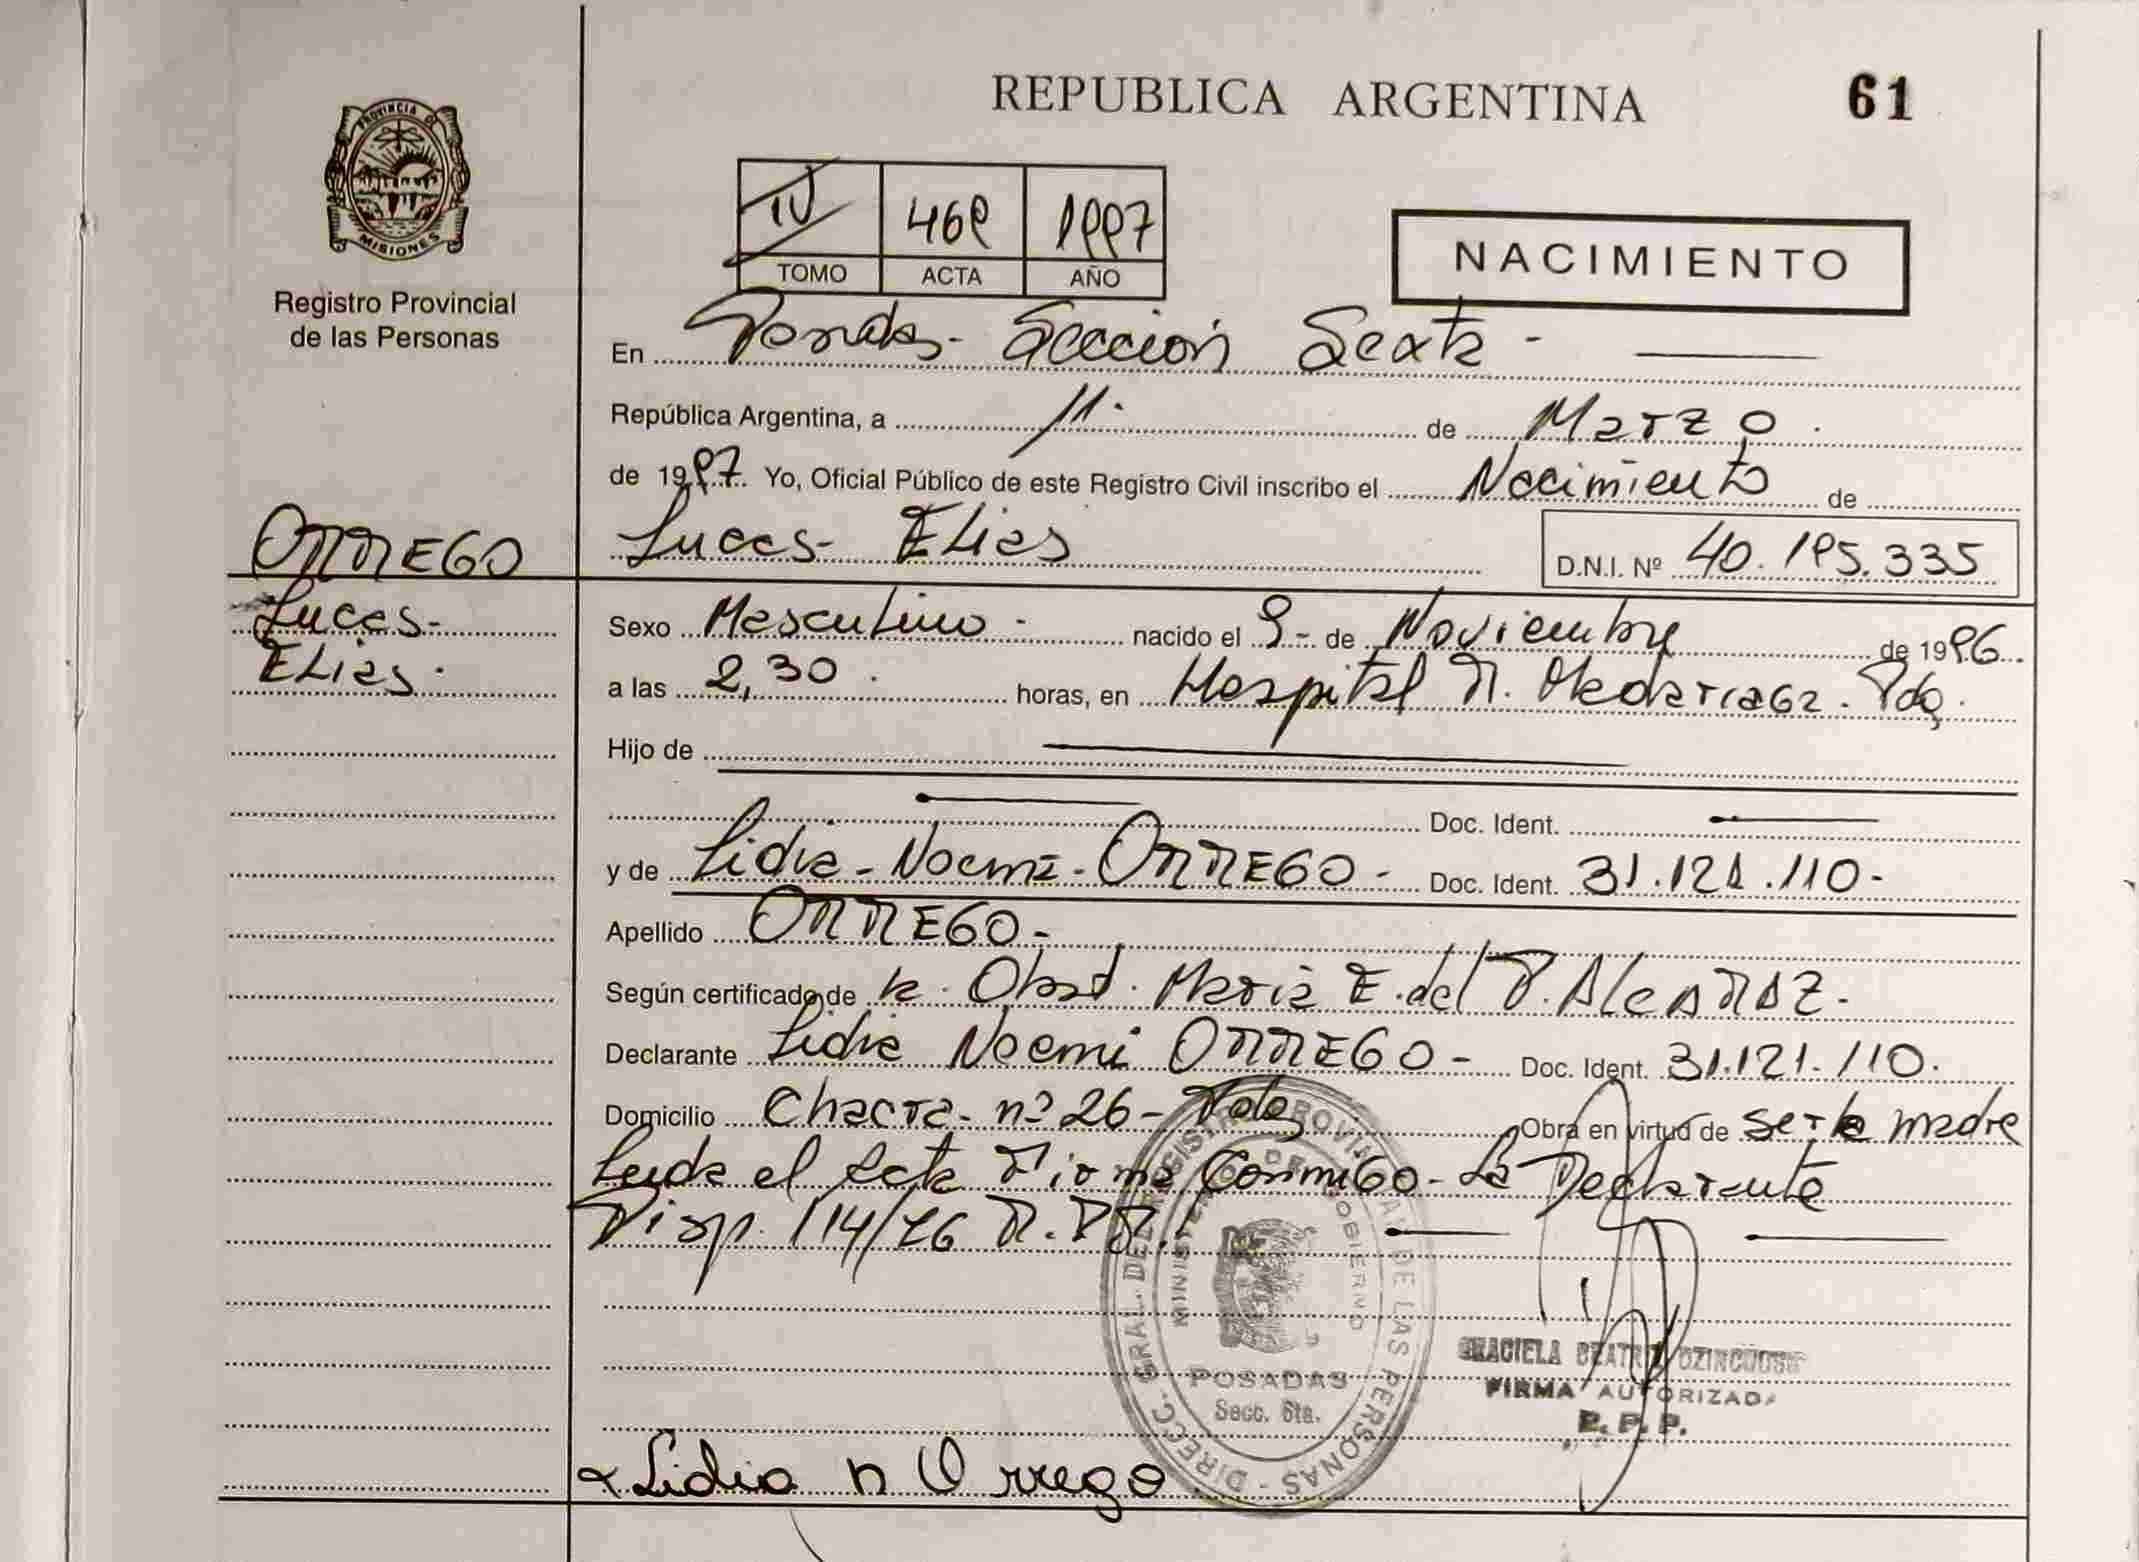 REPUBLICA ARGENTINA 61
PROVINCIA DE
MISIONES
Registro Provincial
de las Personas
IV 469 1997
TOMO ACTA AÑO
NACIMIENTO
En Posadas - Sección Sexta -
República Argentina, a 11. de Marzo.
de 1997. Yo, Oficial Público de este Registro Civil inscribo el Nacimiento de
ORREGO
Lucas-
Elias.
Lucas- Elias D.N.I. Nº 40.195.335
Sexo Masculino - nacido el 9 - de Noviembre de 1996.
a las 2,30. horas, en Hospital R. Madariaga. Pdas.
Hijo de
Doc. Ident.
y de Lidia - Noemi - ORREGO - Doc. Ident. 31.121.110-
Apellido ORREGO -
Según certificado de la Obst. Maria E. del P. Alcaraz.
Declarante Lidia Noemi ORREGO - Doc. Ident. 31.121.110.
Domicilio Chacra - nº 26 - Pdas Obra en virtud de ser la madre
Leida el acta Firma Conmigo - La Declarante
Disp. 114/76 R.P.P.
DIRECC. GRAL. DEL REGISTRO PROVINCIAL DE LAS PERSONAS -
MINISTERIO DE GOBIERNO
POSADAS
Secc. 6ta.
GRACIELA BEATRIZ
FIRMA AUTORIZADA
R. P. P.
Lidia n Orrego